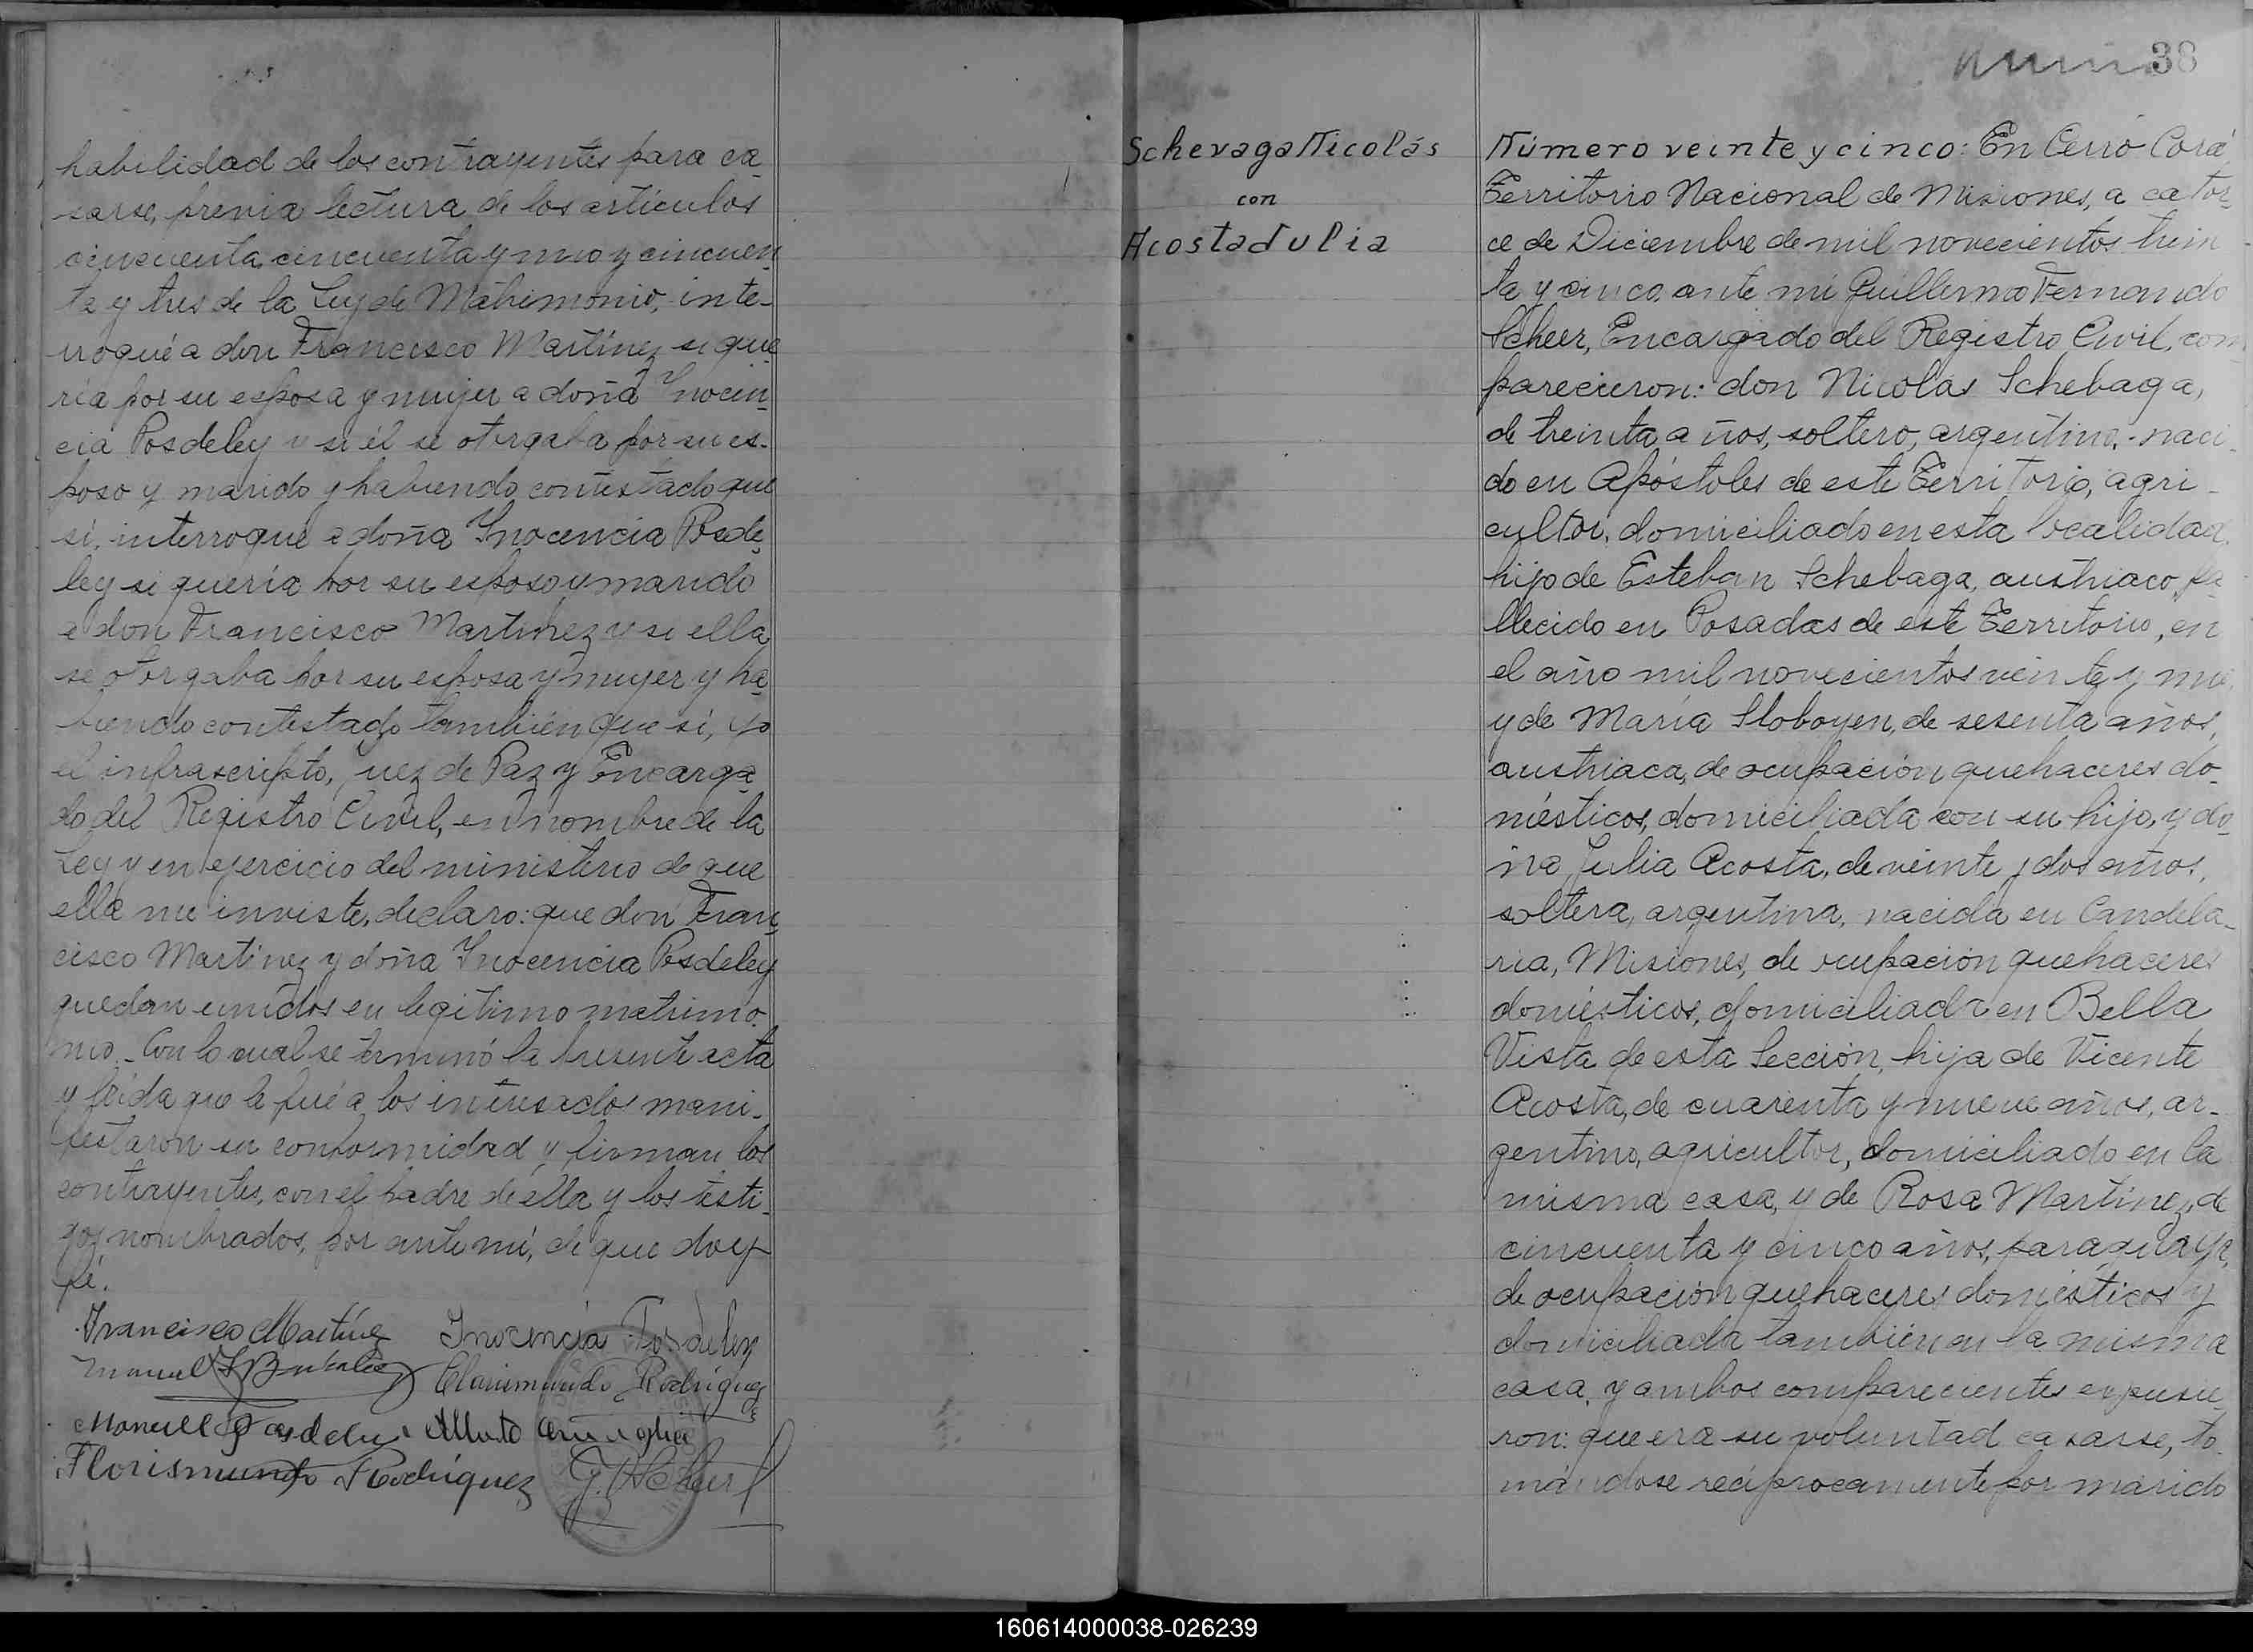 habilidad de los contrayentes para ca-
sarse, previa lectura de los artículos
cincuenta, cincuenta y uno y cincuen-
ta y tres de la Ley de Matrimonio, inte-
rrogué a don Francisco Martínez si que-
ría por su esposa y mujer a doña Inocen-
cia Posdeley y si él se otorgaba por su es-
poso y marido y habiendo contestado que
sí, interrogué a doña Inocencia Posde-
ley si quería por su esposo y marido
a don Francisco Martínez y si ella
se otorgaba por su esposa y mujer y ha-
biendo contestado también que sí, yo
el infrascripto, Juez de Paz y Encarga-
do del Registro Civil, en nombre de la
Ley y en ejercicio del ministerio de que
ella me inviste, declaro: que don Fran-
cisco Martínez y doña Inocencia Posdeley
quedan unidos en legítimo matrimo-
nio.- Con lo cual se terminó la presente acta
y leída que le fué a los interesados mani-
festaron su conformidad y firman los
contrayentes, con el padre de ella y los testi-
gos nombrados, por ante mí, de que doy
fé.
Francisco Martínez Inocencia Posdeley
Manuel Clarismundo Rodríguez
Manuell Posdeley Alberto
Florismundo Rodríguez G. F. Scheer
38
Schevaga Nicolás
con
Acosta Julia
Número veinte y cinco: En Cerro Corá
Territorio Nacional de Misiones, a cator-
ce de Diciembre de mil novecientos trein
ta y cinco, ante mí Guillermo Fernando
Scheer, Encargado del Registro Civil, com
parecieron: don Nicolás Schebaga,
de treinta años, soltero, argentino, naci-
do en Apóstoles de este Territorio, agri-
cultor, domiciliado en esta localidad,
hijo de Esteban Schebaga, austriaco, fa-
llecido en Posadas de este Territorio, en
el año mil novecientos veinte y
y de María Sloboyen, de sesenta años,
austriaca, de ocupación quehaceres do-
mésticos, domiciliada con su hijo, y do-
ña Julia Acosta, de veinte y dos años,
soltera, argentina, nacida en Candela-
ria, Misiones, de ocupación quehaceres
domésticos, domiciliada en Bella
Vista de esta Sección, hija de Vicente
Acosta, de cuarenta y nueve años, ar-
gentino, agricultor, domiciliado en la
misma casa, y de Rosa Martínez, de
cincuenta y cinco años, paraguaya,
de ocupación quehaceres domésticos y
domiciliada también en la misma
casa, y ambos comparecientes expusie-
ron: que era su voluntad casarse, to-
mándose recíprocamente por marido
160614000038-026239